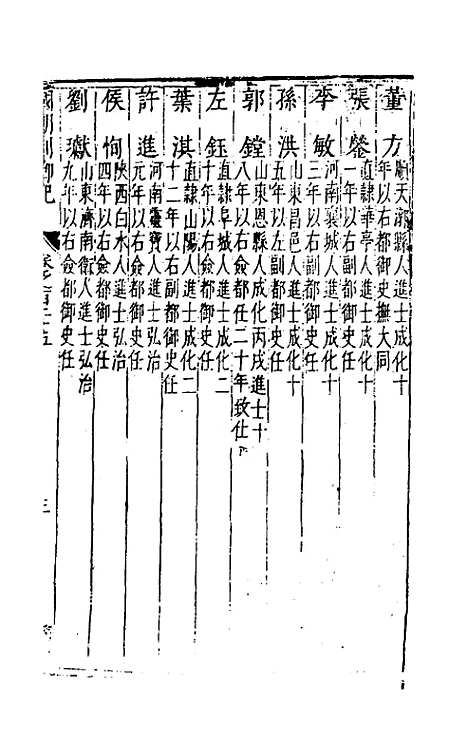 董方順天漷縣人進士成化十
年以右都御史撫大同
張鎣直隸華亭人進士成化十
一年以右副都御史任
李敏河南襄城人進士成化十
三年以右副都御史任
孫洪山東昌邑人進士成化十
五年以左副都御史任
郭鏜山東恩縣人成化丙戌進士十
八年以右僉都御史任二十年致仕
左鈺直隸阜城人進士成化二
十年以右僉都御史任
葉淇直隸山陽人進士成化二
十二年以右副都御史任
許進河南靈寶人進士弘治
元年以右僉都御史任
侯恂陝西白水人進士弘治
四年以右僉都御史任
劉瓛山東濟南衛人進士弘治
九年以右僉都御史任
國朝列卿紀
三